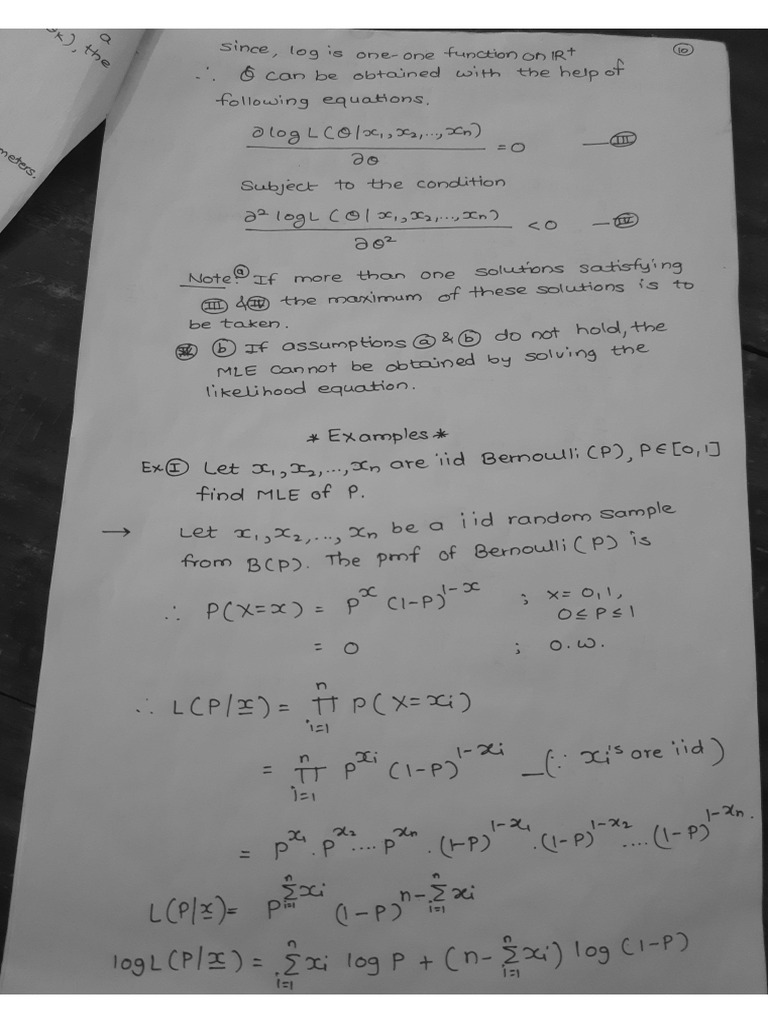 a
θk), the
meters.
10
Since, log is one-one function on IR⁺
∴ θ̂ can be obtained with the help of
following equations.
∂ log L(θ/x₁, x₂, .., xₙ) / ∂θ = 0 — III
Subject to the condition
∂² log L (θ/x₁, x₂, ..., xₙ) / ∂θ² < 0 — IV
Note: ⓐ If more than one solutions satisfying
III & IV the maximum of these solutions is to
be taken.
ⓑ If assumptions ⓐ & ⓑ do not hold, the
MLE cannot be obtained by solving the
likelihood equation.
* Examples *
Ex I Let x₁, x₂, ..., xₙ are iid Bernoulli (P), P ∈ [0, 1]
find MLE of P.
→ Let x₁, x₂, ..., xₙ be a iid random sample
from B(P). The pmf of Bernoulli (P) is
∴ P(X=x) = P^x (1-P)^(1-x) ; x = 0, 1,
0 ≤ P ≤ 1
= 0 ; o.w.
∴ L(P/x̲) = ∏_{i=1}^{n} P(X=xi)
= ∏_{i=1}^{n} P^(xi) (1-P)^(1-xi) — (∵ xi's are iid)
= P^(x₁) . P^(x₂) .... P^(xₙ) . (1-P)^(1-x₁) . (1-P)^(1-x₂) .... (1-P)^(1-xₙ).
L(P/x̲) = P^(∑_{i=1}^{n} xi) (1-P)^(n-∑_{i=1}^{n} xi)
log L(P/x̲) = ∑_{i=1}^{n} xi log P + (n-∑_{i=1}^{n} xi) log (1-P)